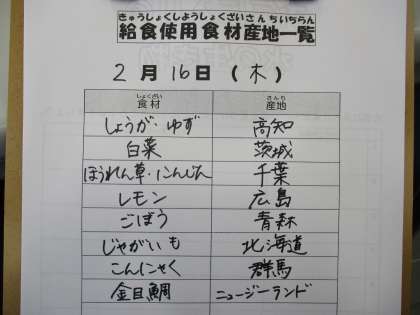 きゅうしょくしようしょくざいさんちいちらん
給食使用食材産地一覧
2月16日(木)
しょくざい さんち
食材 産地
しょうが・ゆず 高知
白菜 茨城
ほうれん草・にんじん 千葉
レモン 広島
ごぼう 青森
じゃがいも 北海道
こんにゃく 群馬
金目鯛 ニュージーランド